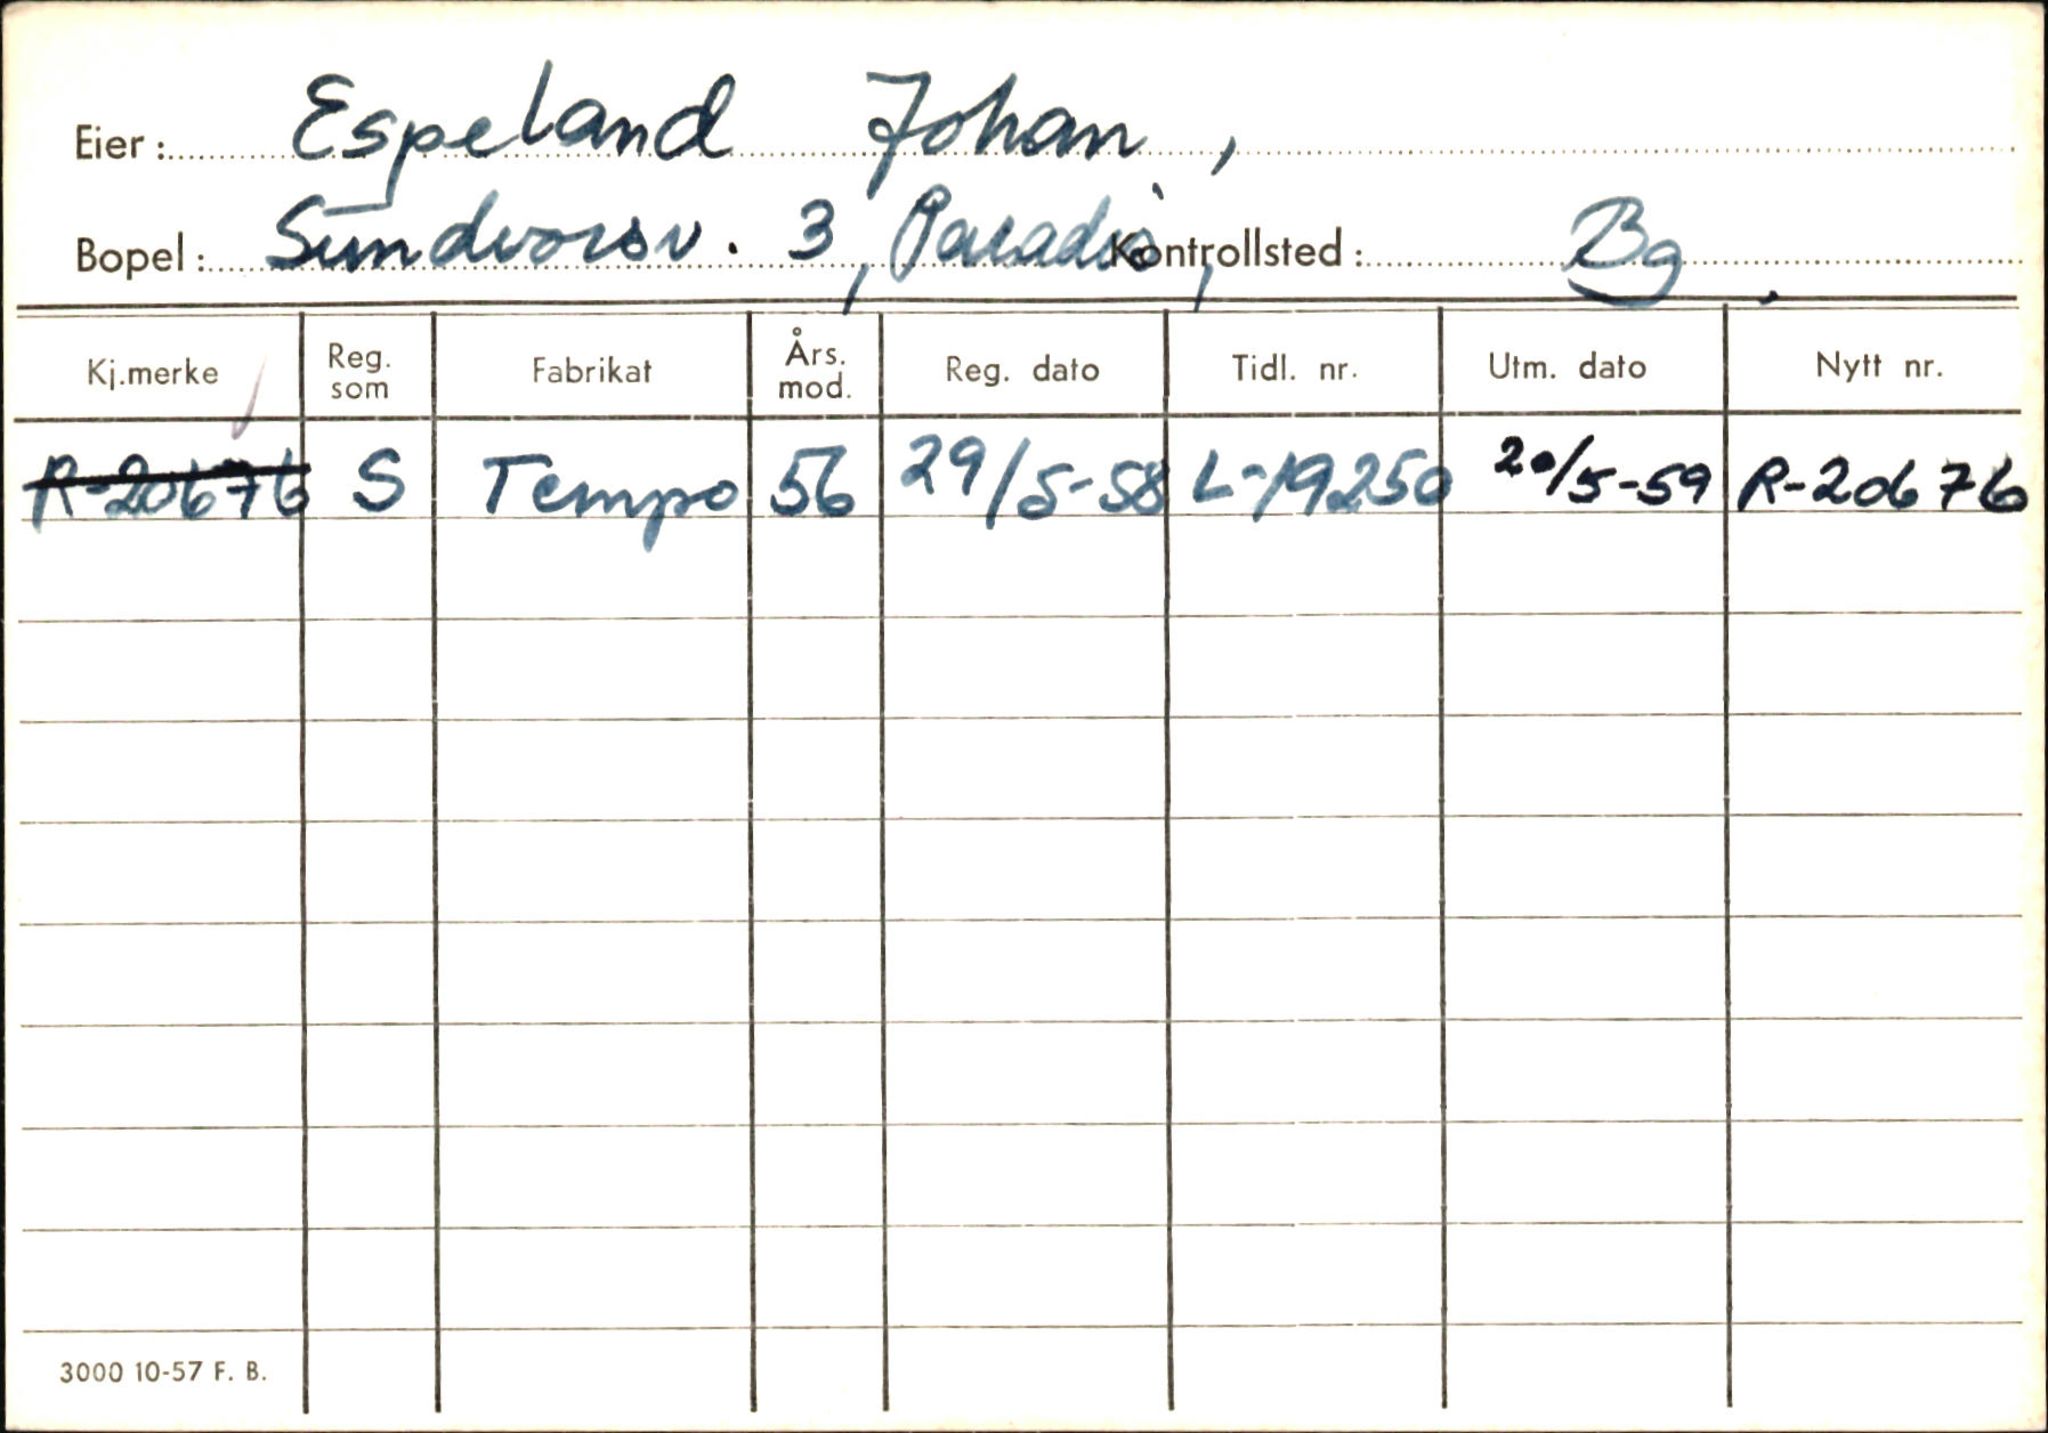 Eier: Espeland Johan,
Bopel: Sundvorsv. 3, Paradis, Kontrollsted: Bg.
Kj.merke Reg. som Fabrikat Års. mod. Reg. dato Tidl. nr. Utm. dato Nytt nr.
R-20676 S Tempo 56 29/5-58 L-19250 20/5-59 R-20676
3000 10-57 F. B.